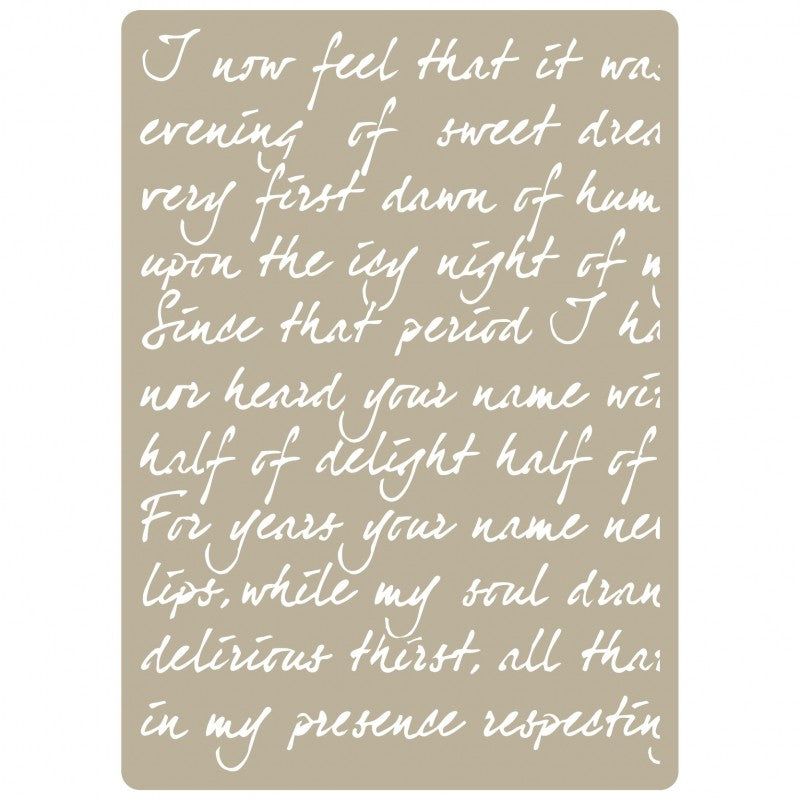 I now feel that it was
evening of sweet drea
very first dawn of hum
upon the icy night of m
Since that period I ha
nor heard your name wit
half of delight half of
For years your name nev
lips, while my soul dran
delirious thirst, all that
in my presence respecting